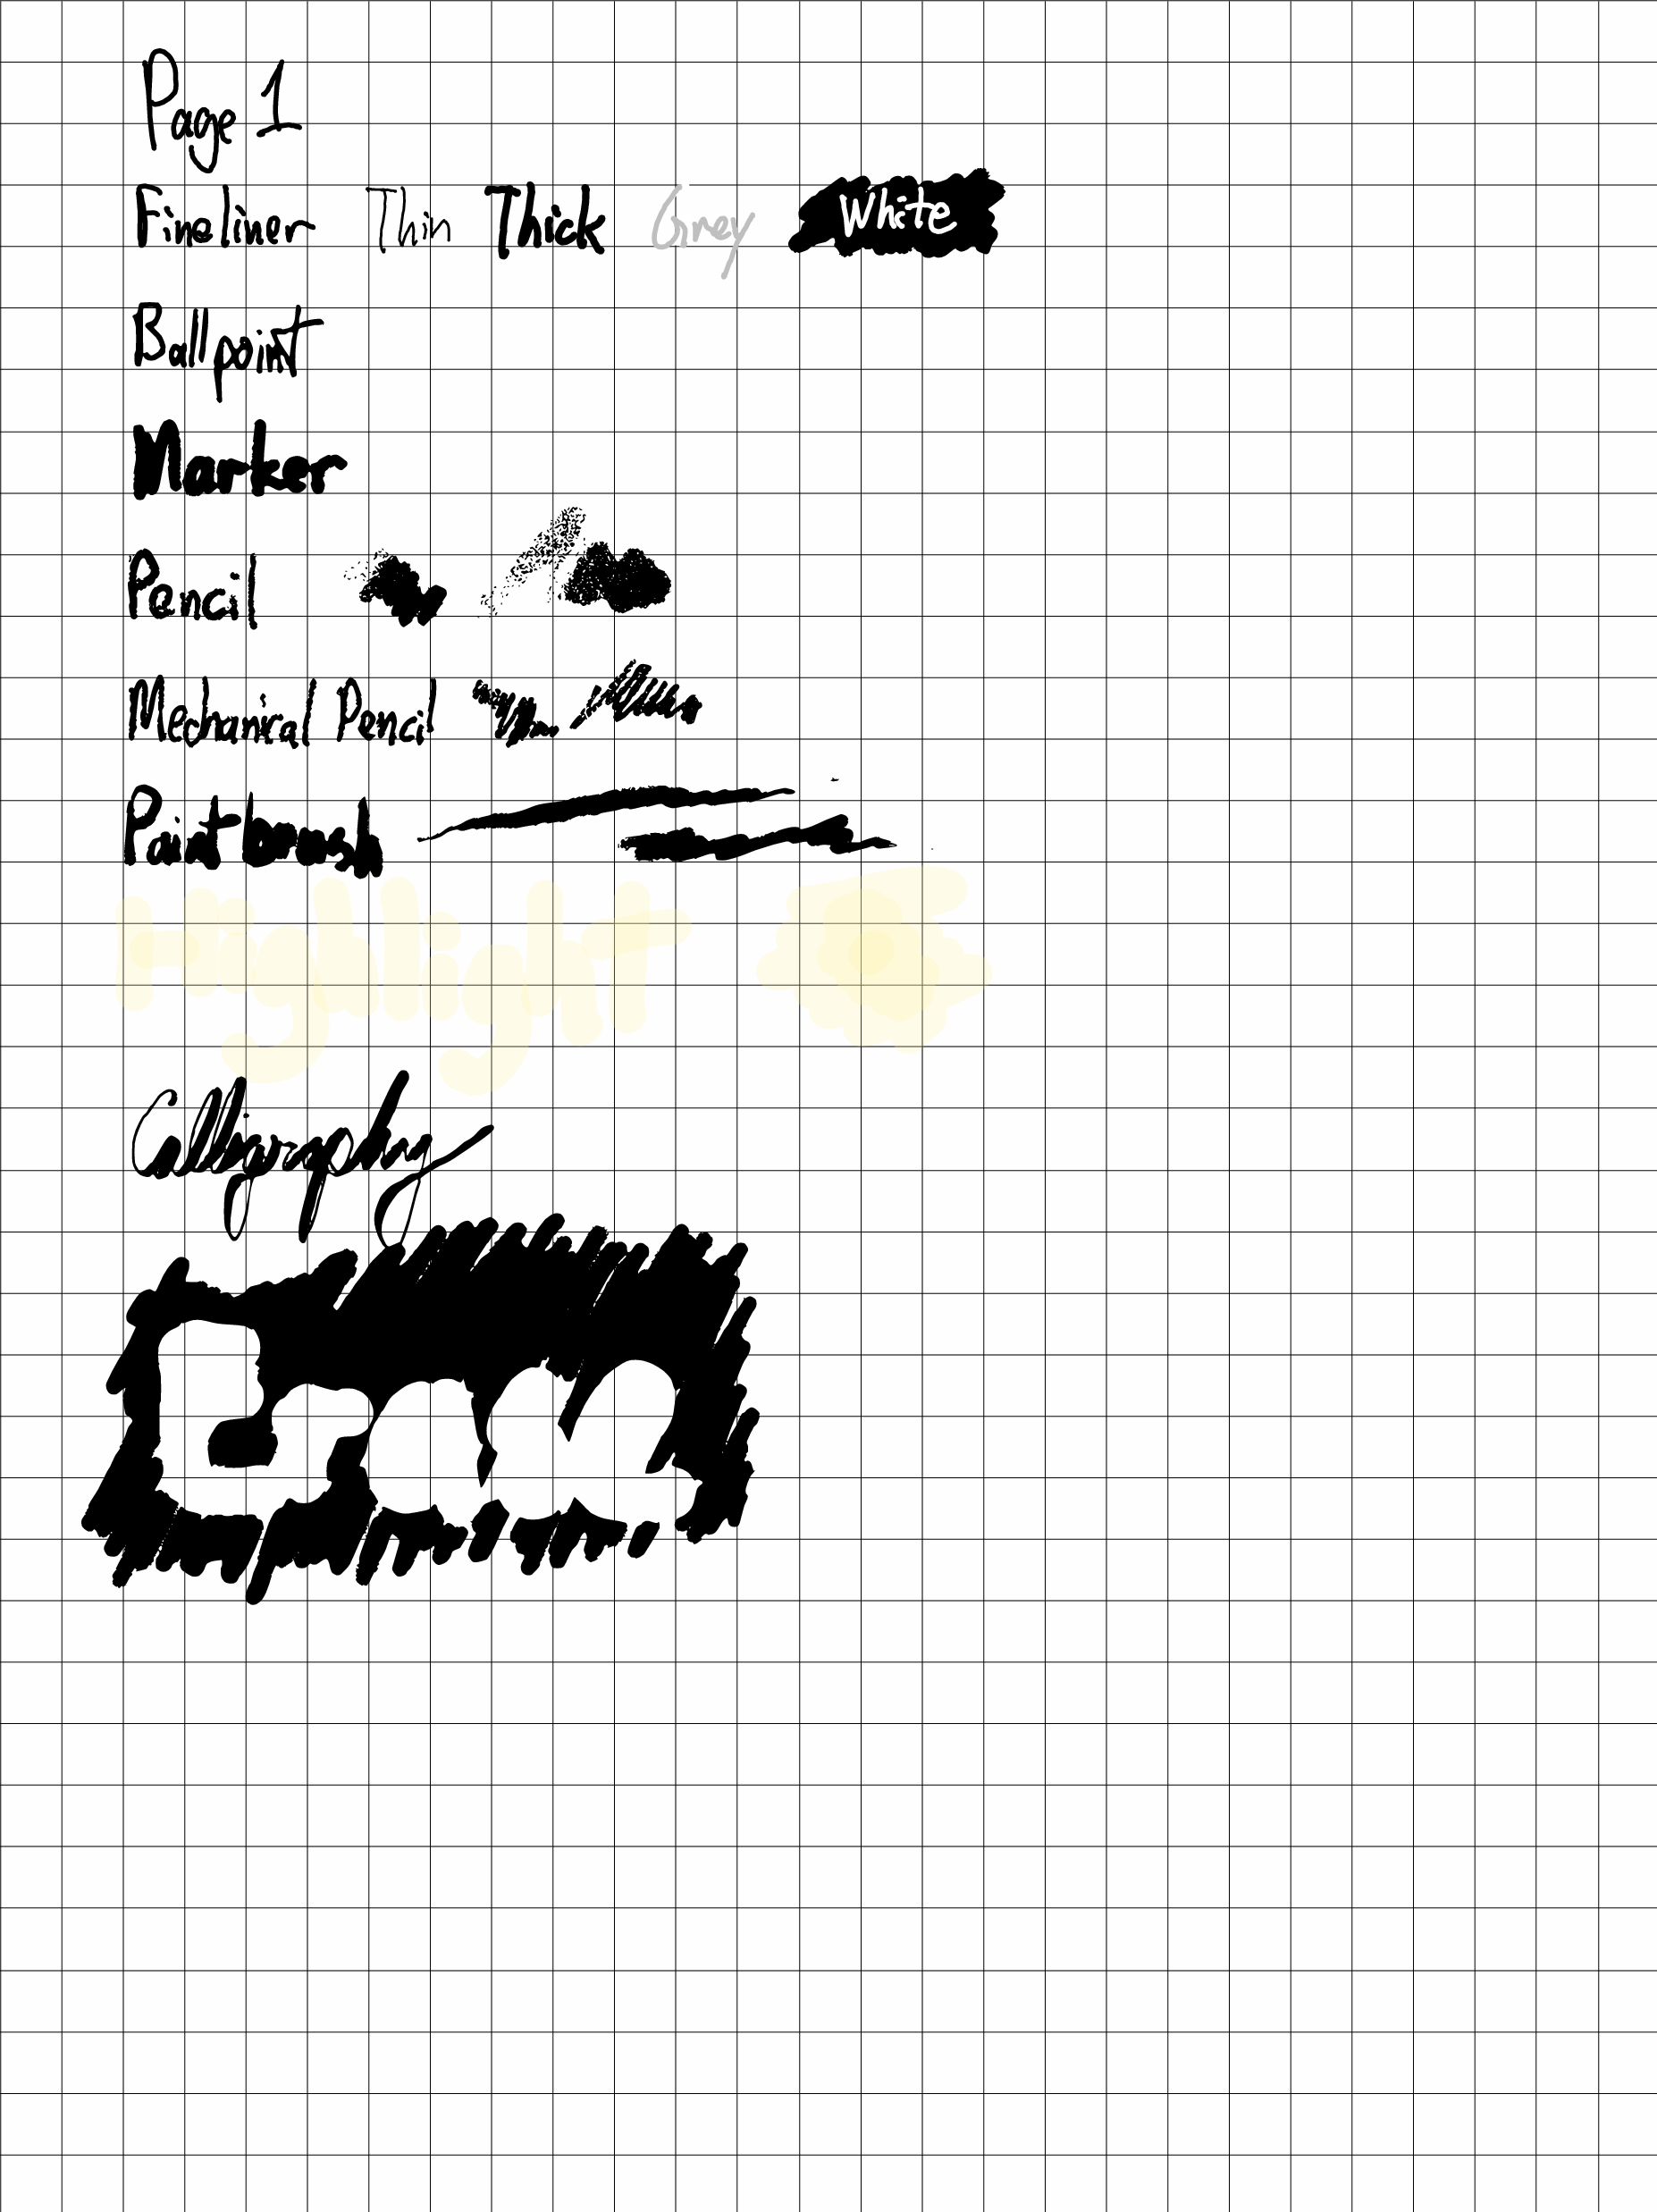 Page 1
Fineliner Thin Thick Grey White
Ballpoint
Marker
Pencil
Mechanical Pencil
Paintbrush
Highlight
Calligraphy